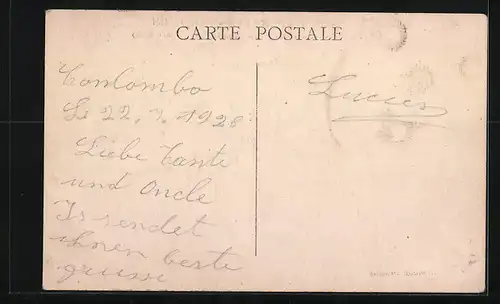 CARTE POSTALE
Conlombo
Le 22. 1. 1926
Liebe Tante
und Oncle
Is sendet
ihnen beste
grüsse
Lucien